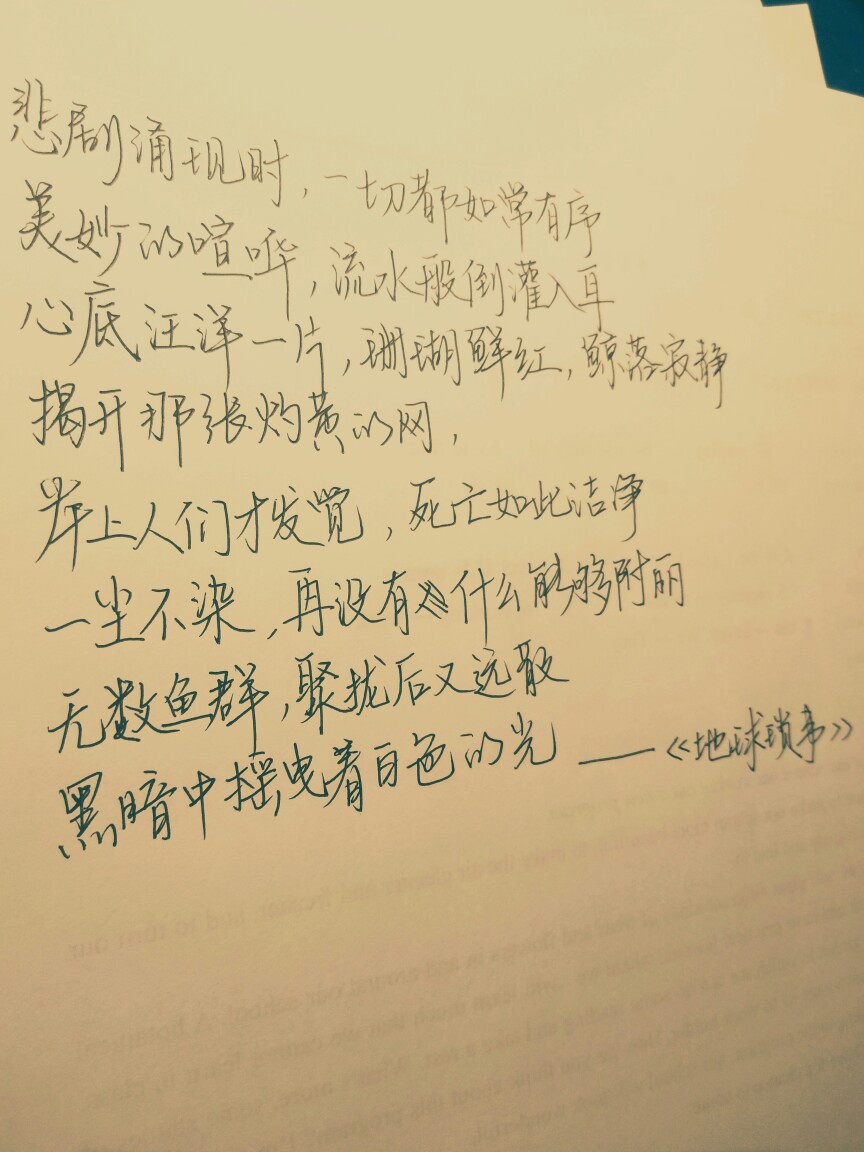 悲剧涌现时，一切都如常有序
美妙的喧哗，流水般倒灌入耳
心底汪洋一片，珊瑚鲜红，鲸落寂静
揭开那张灼黄的网，
岸上人们才发觉，死亡如此洁净
一尘不染，再没有什么能够附丽
无数鱼群，聚拢后又远散
黑暗中摇曳着白色的光 ——《地球琐事》